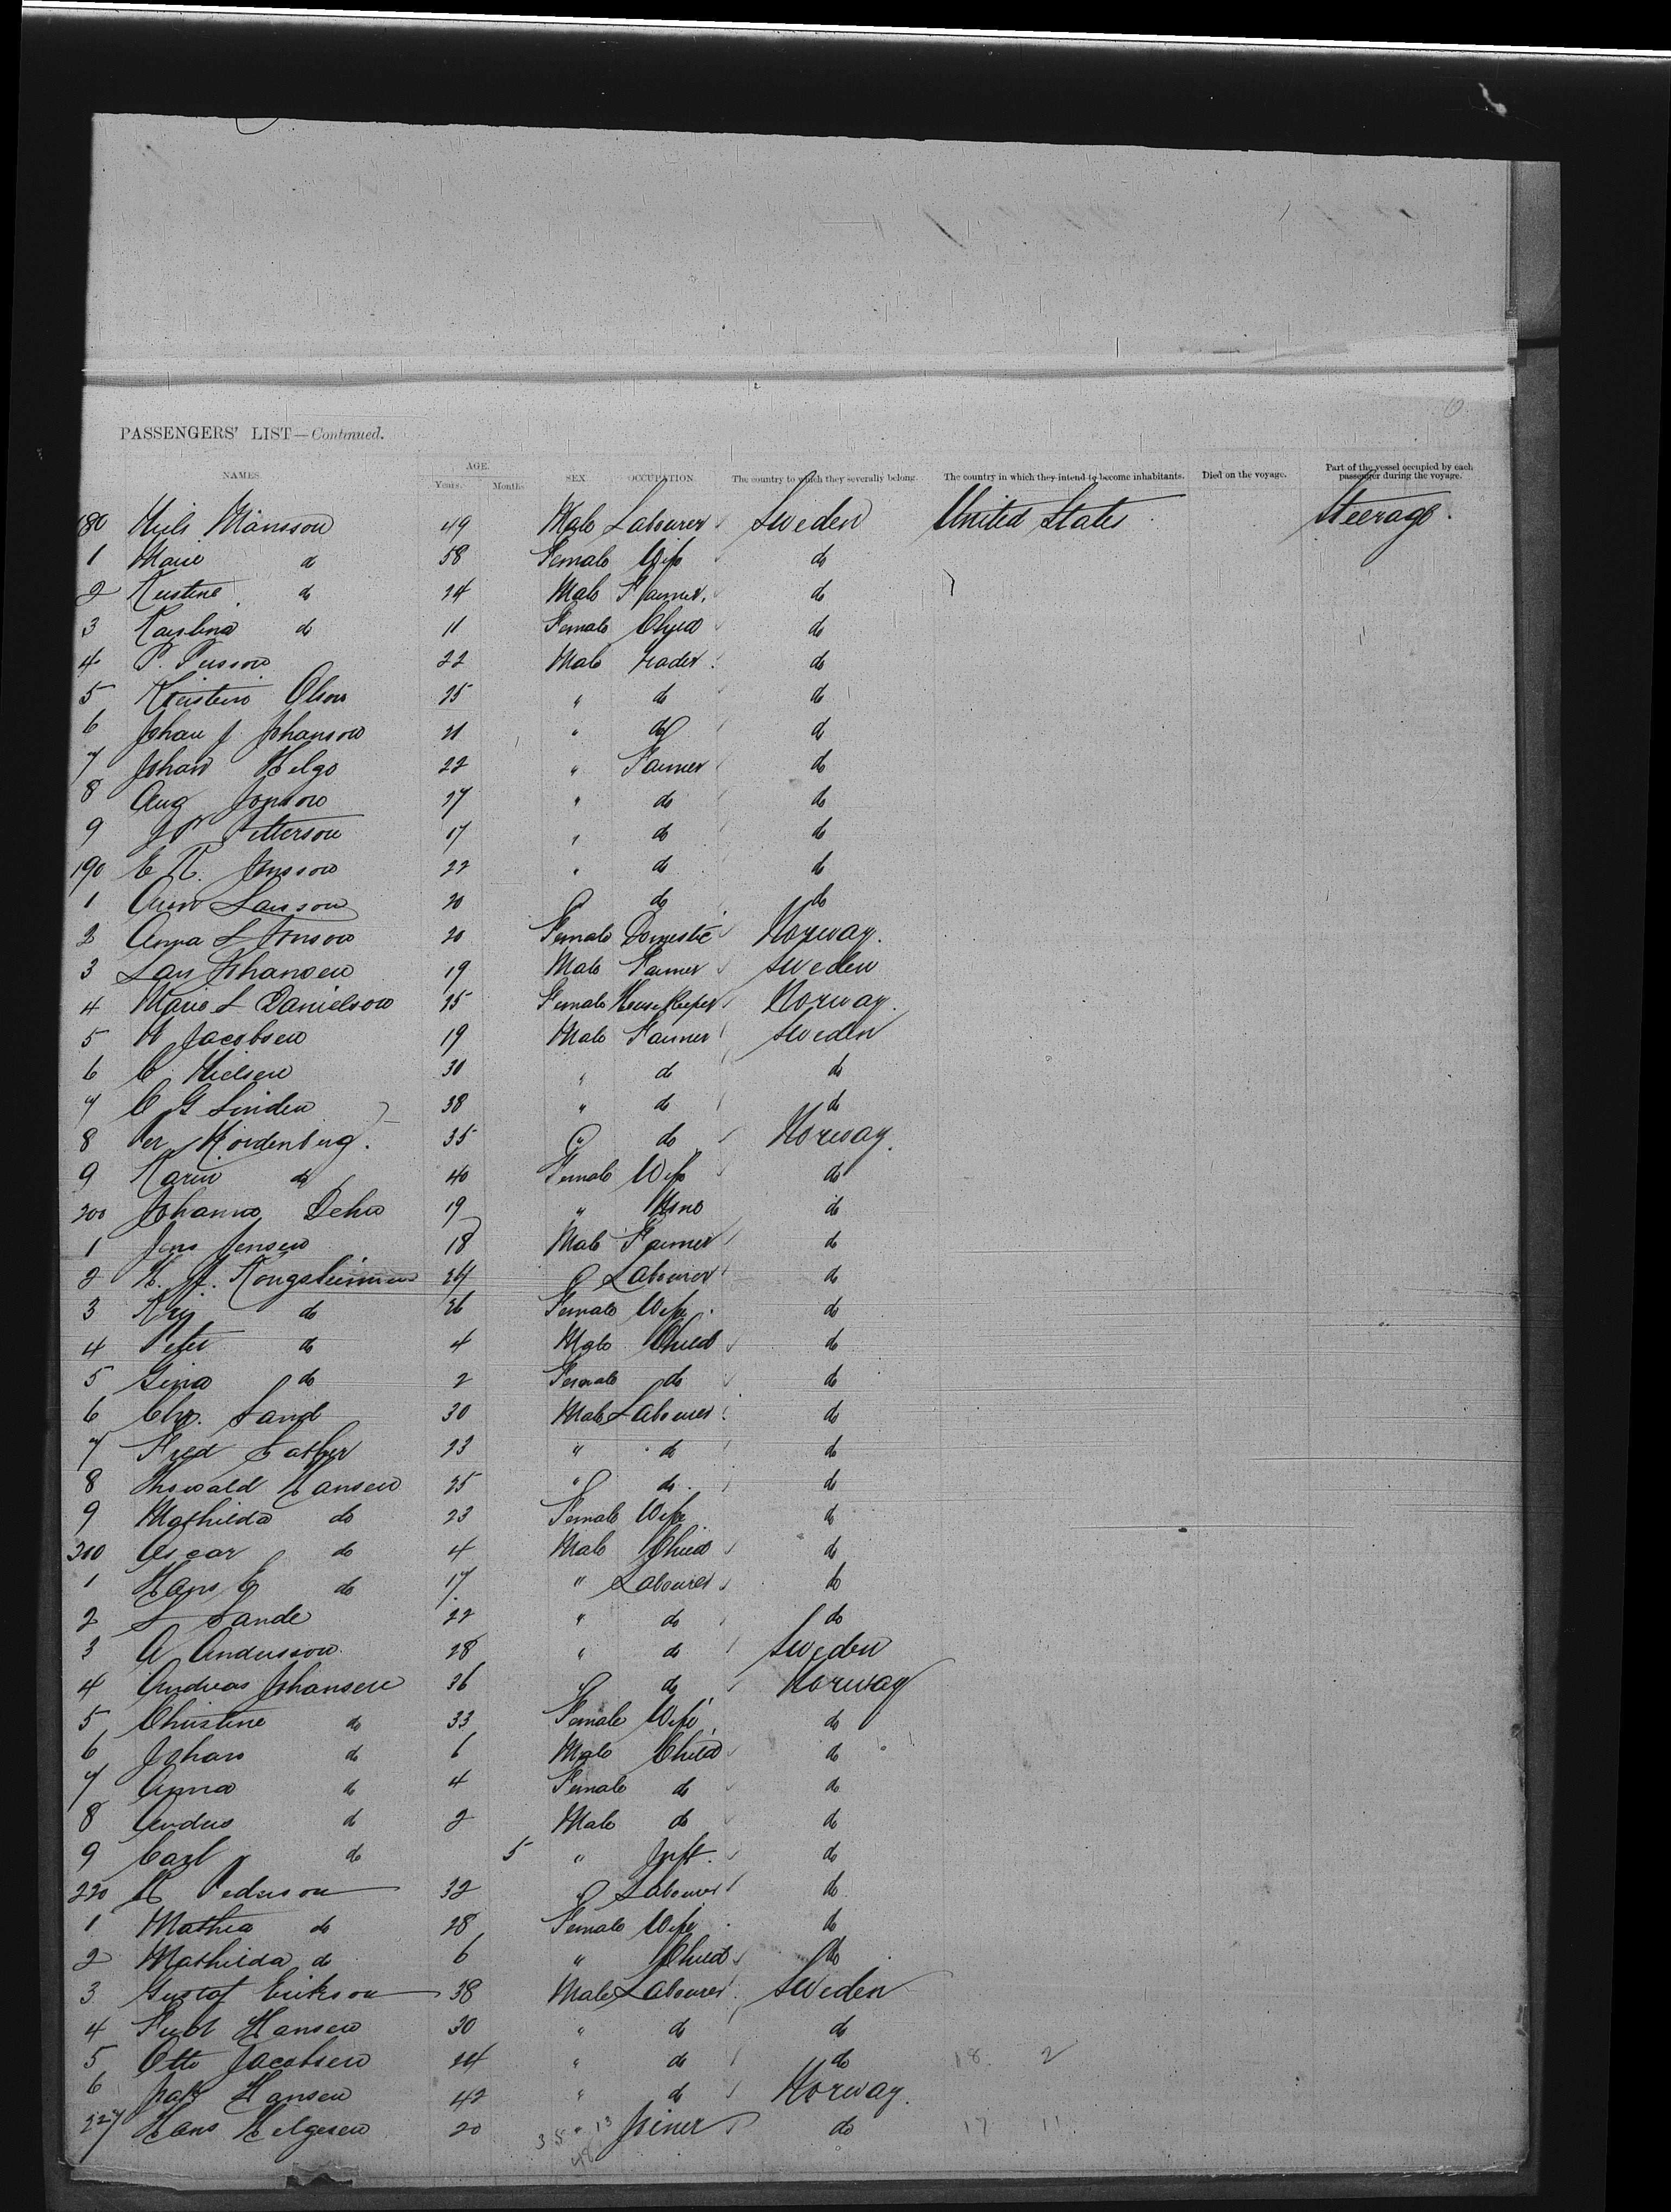 PASSENGERS' LIST—Continued.
NAMES. AGE. Years. Months. SEX OCCUPATION. The country to which they severally belong. The country in which they intend to become inhabitants. Died on the voyage. Part of the vessel occupied by each passenger during the voyage.
180 Nils Mänsson 49 Male Labourer Sweden United States Steerage.
1 Marie do 58 Female Wife do
2 do 24 Male Farmer. do
3 do 11 Female Child do
4 P. 22 Male trader. do
5 Olson 25 " do do
6 Johan J. Johanson 21 " do do
7 Johan Helge 22 " Farmer do
8 Aug Jonson 27 " do do
9 J P Petterson 17 " do do
190 E Jonsson 22 " do do
1 Larsson 20 do do
2 Anna L Jonson 20 Female Domestic Norway.
3 Lars Johansen 19 Male Farmer Sweden
4 Marie L Danielson 25 Female House Keeper Norway.
5 Jacobsen 19 Male Farmer Sweden
6 C. Nielsen 30 " do do
7 C G Linden 38 " do do
8 Per Nordenberg. 35 " do Norway.
9 Karin do 40 Female Wife do
200 Johanna 19 " do
1 Jens Jensen 18 Male Farmer do
2 Labourer do
3 do 26 Female Wife. do
4 Peter do 4 Male Child do
5 Gina do 2 Female do do
6 Chr. Sand 30 Male Labourer. do
7 Fred 23 " do do
8 Hansen 25 " do. do
9 Mathilda do 23 Female Wife. do
210 Oscar do 4 Male Child do
1 Hans E do 17. " Labourer do
2 L Sande 22 " do do
3 A Andersson 28 " do Sweden
4 Andreas Johansen 36 do Norway
5 Christine do 33 Female Wife do
6 Johan do 6 Male Child do
7 Anna do 4 Female do do
8 Anders do 2 Male do do
9 Carl do 5 " Inft. do
220 Pederson 32 " Labourer do
1 Mathea do 28 Female Wife do
2 Mathilda do 6 " Child do
3 Gustaf Erikson 38 Male Labourer. Sweden
4 Hansen 30 " do do
5 Otto Jacobsen 24 " do do 18 2
6 Hansen 42 " do Norway.
227 Hans Helgesen 20 " Joiner do 17 11
35 13
48